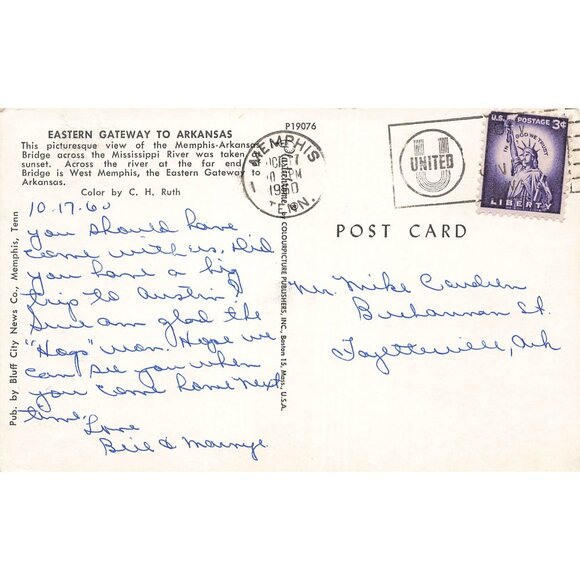 EASTERN GATEWAY TO ARKANSAS
This picturesque view of the Memphis-Arkansas
Bridge across the Mississippi River was taken at
sunset. Across the river at the far end
Bridge is West Memphis, the Eastern Gateway to
Arkansas.
Color by C. H. Ruth
10-17-60
you should have
come with us. Did
you have a big
trip to Austin?
Sure am glad the
"Hogs" won. Hope we
can see you when
you come home next
time.
Love
Bill &
Pub. by Bluff City News Co., Memphis, Tenn
P19076
COLOURPICTURE PUBLISHERS, INC., Boston 15, Mass., U.S.A.
MEMPHIS
PM
1960
TENN.
UNITED
U.S. POSTAGE 3¢
IN GOD WE TRUST
LIBERTY
POST CARD
Mr. Mike
Buchannan St.
Fayetteville, Ark